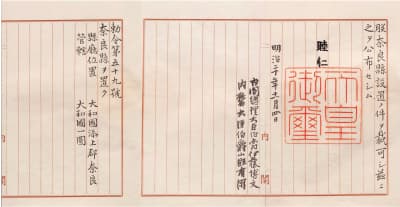 朕奈良縣設置ノ件ヲ裁可シ茲ニ
之ヲ公布セシム
睦仁
天皇
御璽
明治二十年十一月四日
內閣總理大臣伯爵伊藤博文
內務大臣伯爵山縣有朋
內閣
勅令第五十九號
奈良縣ヲ置ク
縣廳位置 大和國添上郡奈良
管轄 大和國一圓
內閣